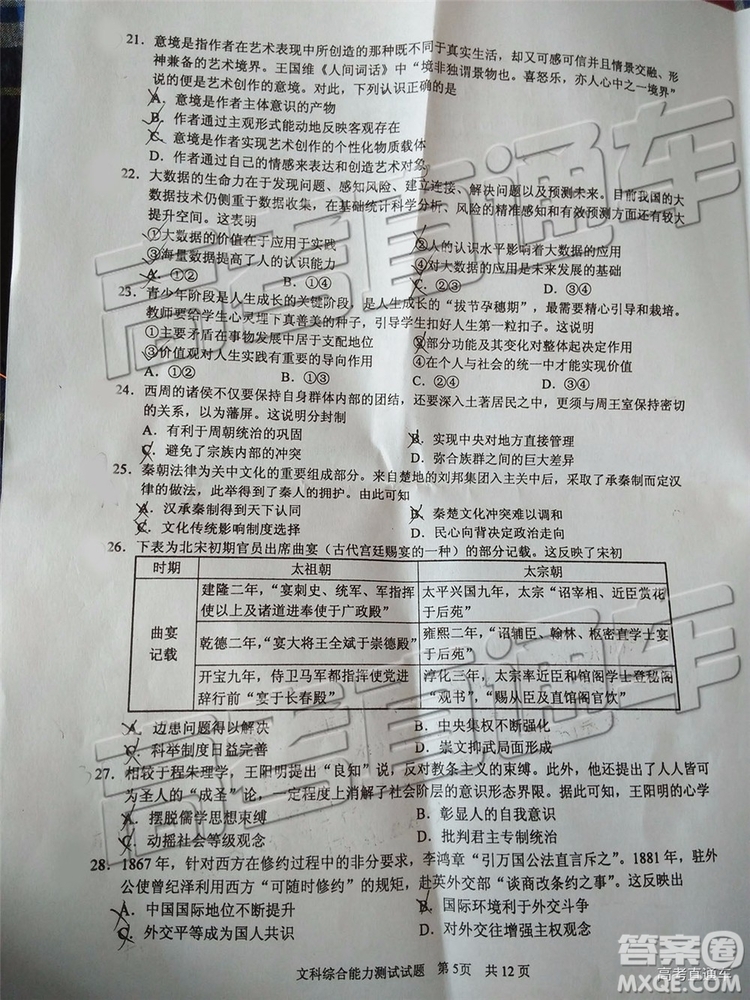 21. 意境是指作者在艺术表现中所创造的那种既不同于真实生活，却又可感可信并且情景交融、形
神兼备的艺术境界。王国维《人间词话》中“境非独谓景物也。喜怒乐，亦人心中之一境界”
说的便是艺术创作的意境。对此，下列认识正确的是
A．意境是作者主体意识的产物
B．作者通过主观形式能动地反映客观存在
C．意境是实现艺术创作的个性化物质载体
D．作者通过自己的情感来表达和创造艺术对象
22. 大数据的生命力在于发现问题、感知风险、建立连接、解决问题以及预测未来。目前我国的大
数据技术仍侧重于数据收集，在基础统计科学分析、风险的精准感知和有效预测方面还有较大
提升空间。这表明
①大数据的价值在于应用于实践 ②人的认识水平影响着大数据的应用
③海量数据提高了人的认识能力 ④大数据的应用是未来发展的基础
A．①② B．①③ C．②④ D．③④
23. 青少年阶段是人生成长的关键阶段，是人生成长的“拔节孕穗期”，最需要精心引导和栽培。
教师要给学生心灵埋下真善美的种子，引导学生扣好人生第一粒扣子。这说明
①主要矛盾在事物发展中居于支配地位 ②部分功能及其变化对整体起决定作用
③价值观对人生实践有重要的导向作用 ④在个人与社会的统一中实现价值
A．①② B．①③ C．②④ D．③④
24. 西周的诸侯不仅要保持自身群体内部的团结，还要深入土著居民之中，更须与周王室保持密切
的关系，以为藩屏。这说明分封制
A．有利于周朝统治的巩固 B．实现中央对地方直接管理
C．避免了宗族内部的冲突 D．弥合族群之间的巨大差异
25. 秦朝法律为关中文化的重要组成部分。来自楚地的刘邦集团入主关中后，采取了承秦制而定汉
律的做法，此举得到了秦人的拥护。由此可知
A．汉承秦制得到天下认同 B．秦楚文化冲突难以调和
C．文化传统影响制度选择 D．民心向背决定政治走向
26. 下表为北宋初期官员出席曲宴（古代宫廷赐宴的一种）的部分记载。这反映了宋初
时期 太祖朝 太宗朝
曲宴
记载
建隆二年，“宴刺史、统军、军指挥
使以上及诸道进奉使于广政殿”
太平兴国九年，太宗“诏宰相、近臣赏花
于后苑”
乾德二年，“宴大将王全斌于崇德殿”
雍熙二年，“诏辅臣、翰林、枢密直学士宴
于后苑”
开宝九年，侍卫马军都指挥使党进
辞行前“宴于长春殿”
淳化三年，太宗率近臣和馆阁学士登秘阁
“观书”，“赐从臣及直馆阁官饮”
A．边患问题得以解决 B．中央集权不断强化
C．科举制度日益完善 D．崇文抑武局面形成
27. 相较于程朱理学，王阳明提出“良知”说，反对教条主义的束缚。此外，他还提出了人人皆可
为圣人的“成圣”论，一定程度上消解了社会阶层的意识形态界限。据此可知，王阳明的心学
A．摆脱儒学思想束缚 B．彰显人的自我意识
C．动摇社会等级观念 D．批判君主专制统治
28. 1867年，针对西方在修约过程中的非分要求，李鸿章“引万国公法直言斥之”。1881年，驻外
公使曾纪泽利用西方“可随时修约”的规矩，赴英外交部“谈商改条约之事”。这反映出
A．中国国际地位不断提升 B．国际环境利于外交斗争
C．外交平等成为国人共识 D．
文科综合能力测试试题 第5页 共12页
高考直通车
答案圈
高考直通车